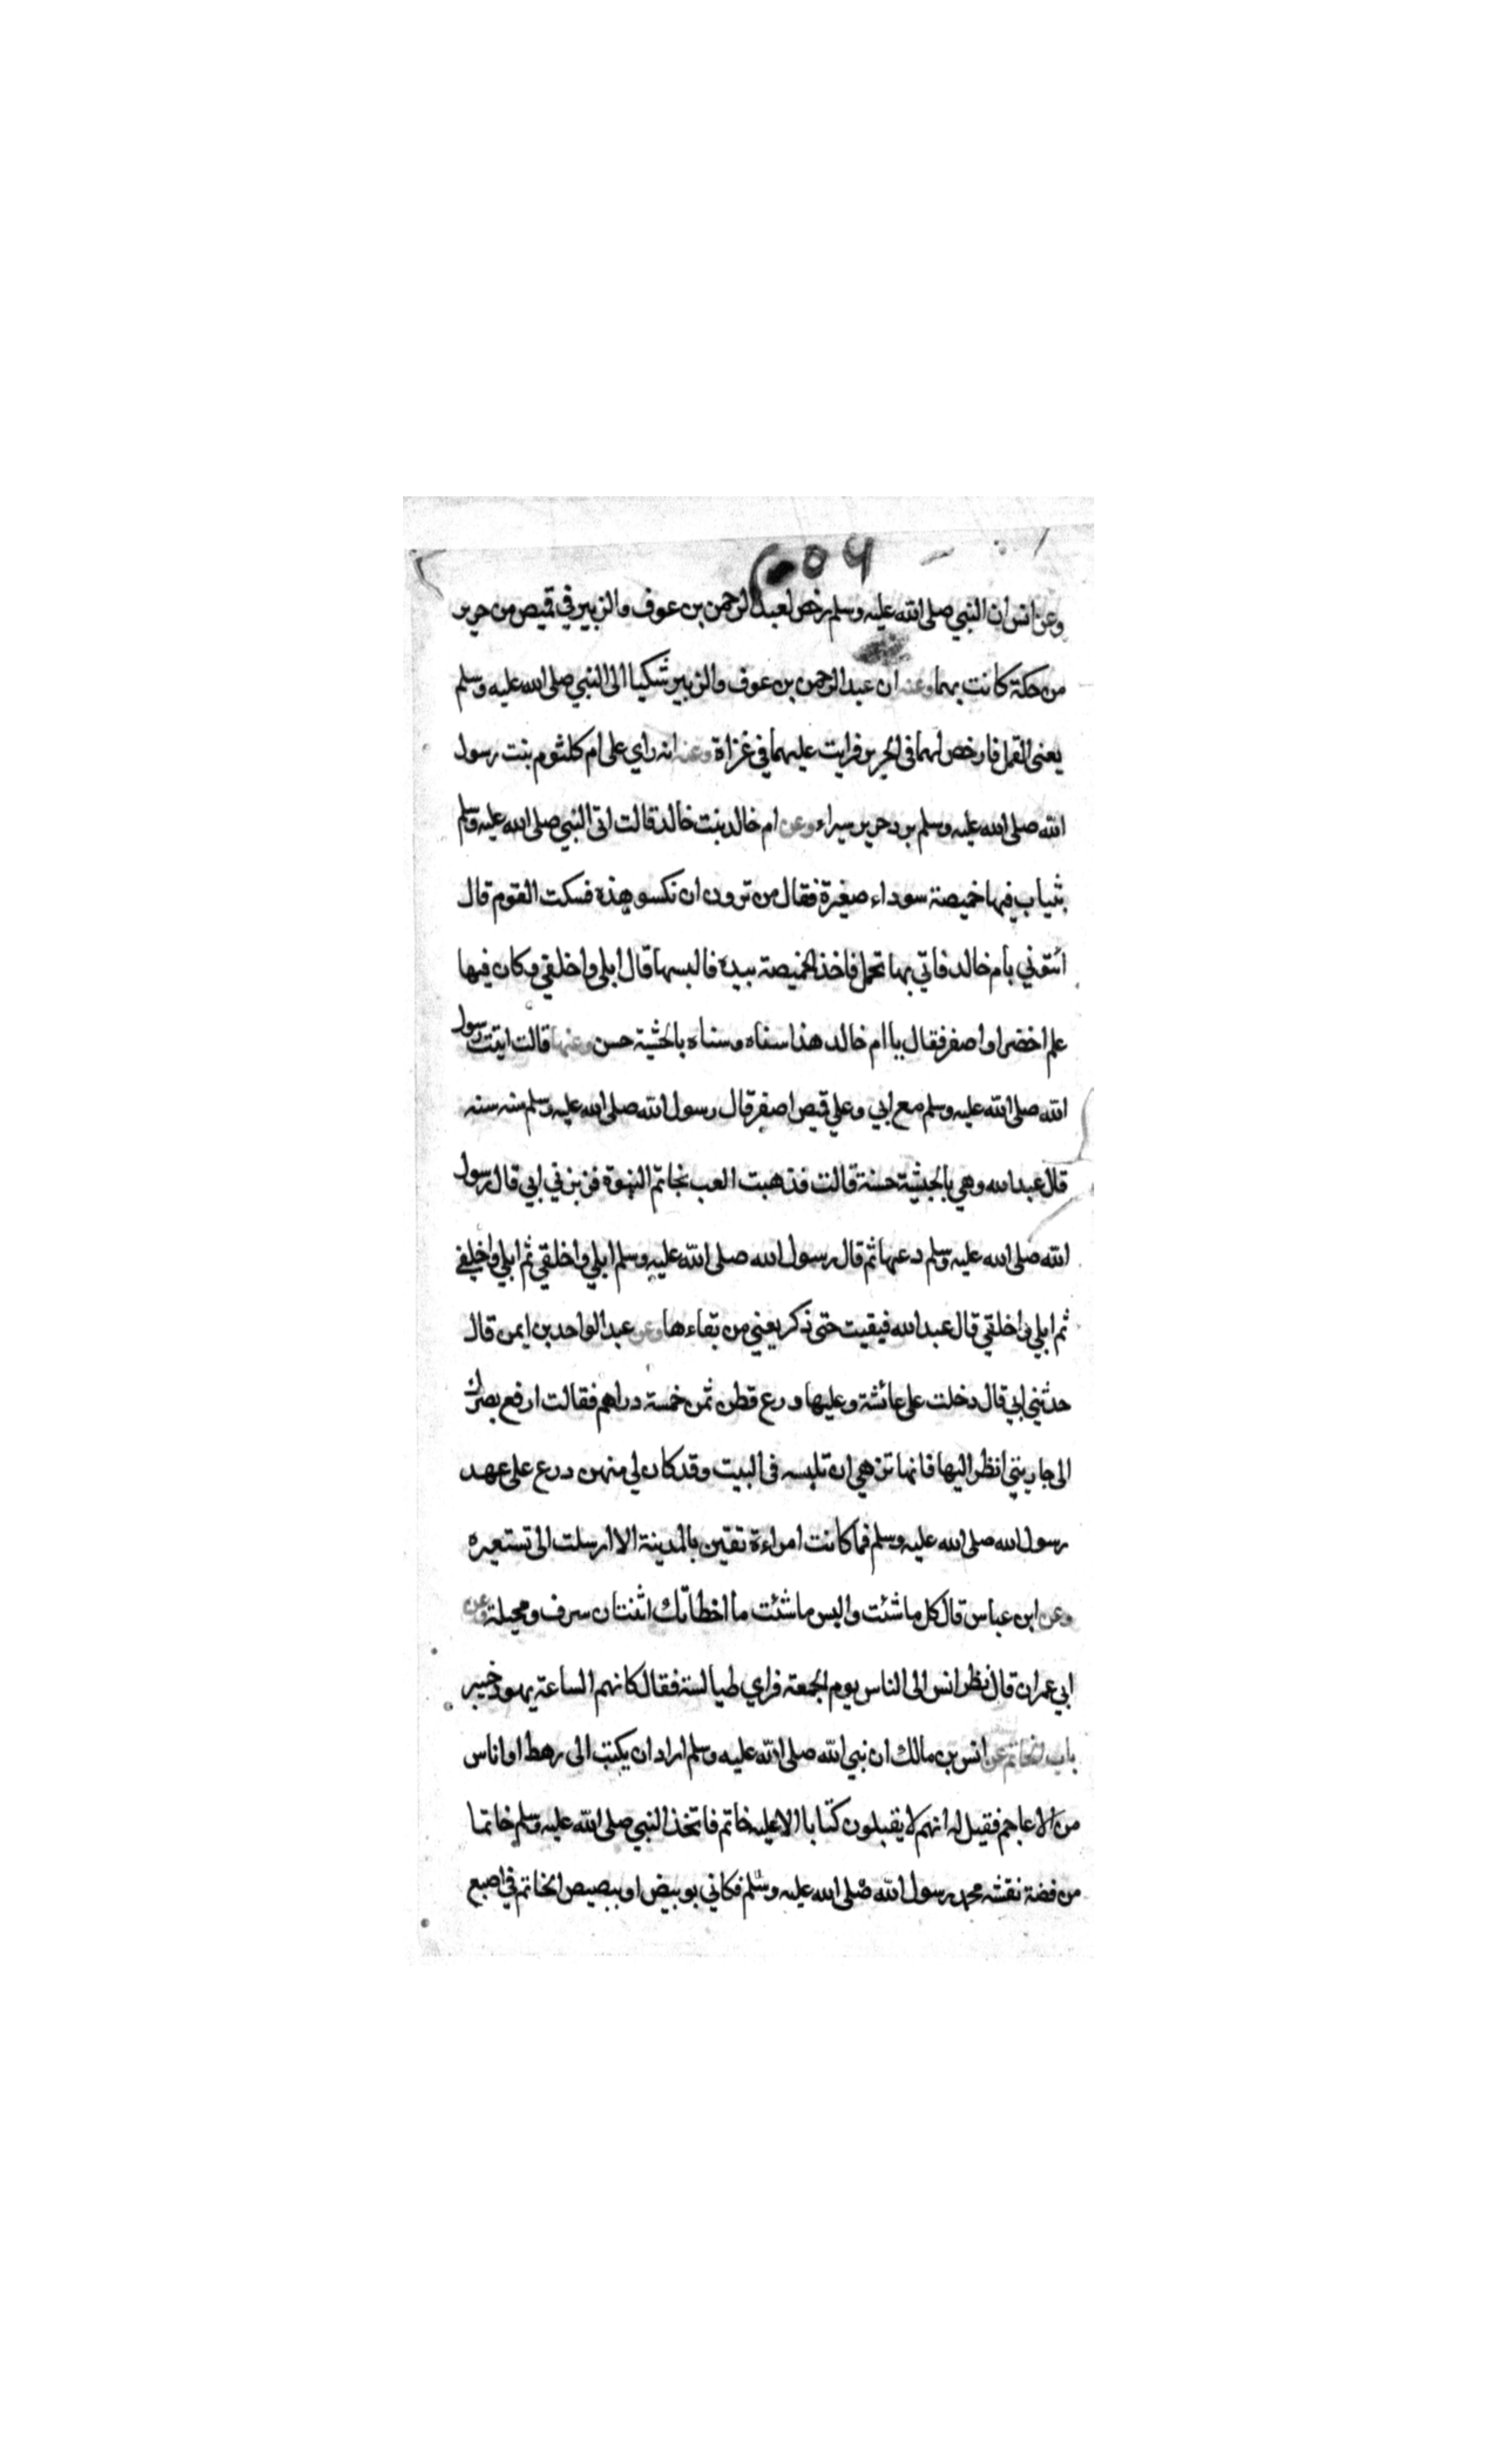 وعن انس ان النبي صلى الله عليه وسلم رخص لعبد الرحمن بن عوف والزبير في قميص من حرير
من حكة كانت بهما وعنه ان عبد الرحمن بن عوف والزبير شكيا الى النبي صلى الله عليه وسلم
يعنى القمل فارخص لهما فى الحرير فرايت عليهما في غزاة وعنه انه راي على ام كلثوم بنت رسول
الله صلى الله عليه وسلم برد حرير سيراء وعن ام خالد بنت خالد قالت اتى النبي صلى الله عليه وسلم
بثياب فيها خميصة سوداء صغيرة فقال من ترون ان نكسو هذه فسكت القوم قال
ائتوني بام خالد فاتي بها تحمل فاخذ الخميصة بيده فالبسها قال ابلى واخلقي وكان فيها
علم اخضر او اصفر فقال يا ام خالد هذا سناه وسناه بالحبشية حسن وعنها قالت اتيت رسول
الله صلى الله عليه وسلم مع ابي وعلي قميص اصفر قال رسول الله صلى الله عليه وسلم سنه سنه
قال عبد الله وهي بالحبشية حسنة قالت فذهبت العب بخاتم النبوة فزبرني ابي قال رسول
الله صلى الله عليه وسلم دعها ثم قال رسول الله صلى الله عليه وسلم ابلي واخلقي ثم ابلي واخلقي
ثم ابلي واخلقي قال عبد الله فبقيت حتى ذكر يعني من بقاءها وعن عبد الواحد بن ايمن قال
حدثني ابي قال دخلت على عائشة وعليها درع قطن ثمن خمسة دراهم فقالت ارفع بصرك
الى جاريتي انظر اليها فانها تزهي ان تلبسه فى البيت وقد كان لي منهن درع على عهد
رسول الله صلى الله عليه وسلم فما كانت امراءة تقين بالمدينة الا ارسلت الى تستعيره
وعن ابن عباس قال كل ما شئت والبس ما شئت ما اخطاتك اثنتان سرف ومخيلة وعن
ابي عمران قال نظر انس الى الناس يوم الجمعة فراي طيالسة فقال كانهم الساعة يهود خيبر
باب الخاتم عن انس بن مالك ان نبي الله صلى الله عليه وسلم اراد ان يكتب الى رهط او اناس
من الاعاجم فقيل له انهم لا يقبلون كتابا الا عليه خاتم فاتخذ النبي صلى الله عليه وسلم خاتما
من فضة نقشه محمد رسول الله صلى الله عليه وسلم فكاني بوبيض او ببصيص الخاتم في اصبع